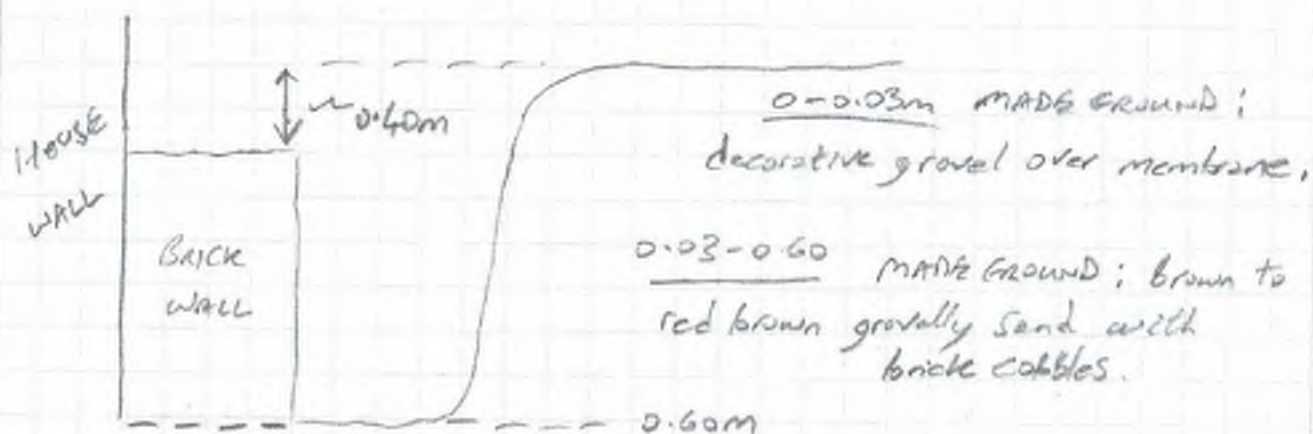 HOUSE
WALL
~0.40m
BRICK
WALL
0-0.03m MADE GROUND;
decorative gravel over membrane.
0.03-0.60 MADE GROUND; Brown to
red brown gravelly sand with
brick cobbles.
0.60m